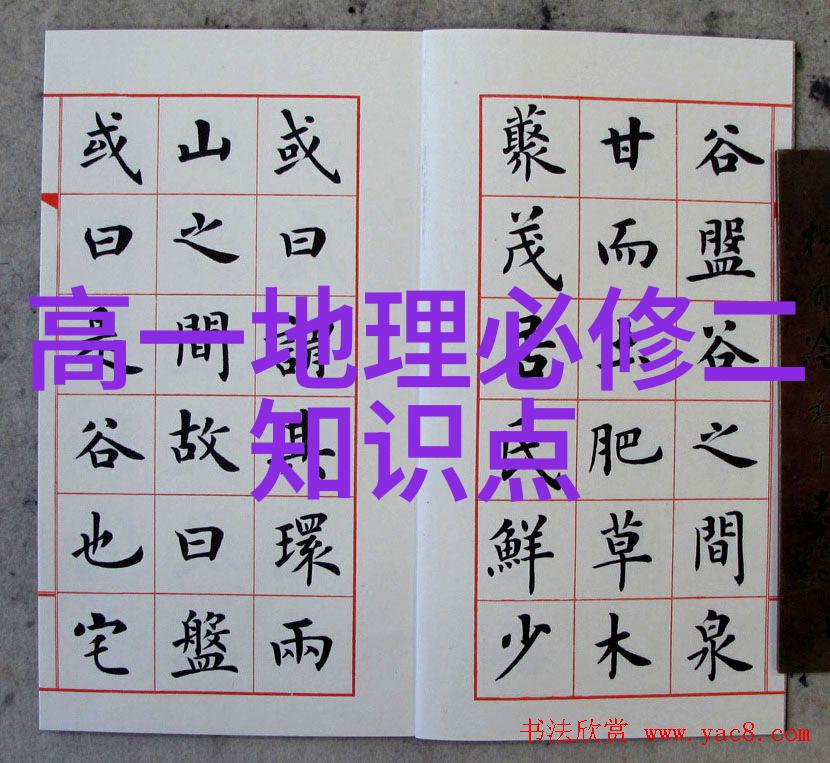 谷盤谷之間泉
甘而土肥草木
藂茂居民鮮少
或曰謂其環兩
山之間故曰盤
或曰是谷也宅
高一地理必修二
知识点
书法欣赏 www.yac8.com